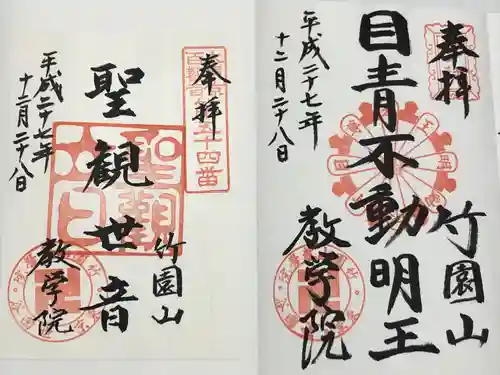 奉拝
聖観世音
竹園山
教学院
平成二十七年
十二月二十八日
奉拝
目青不動明王
竹園山
教学院
平成二十七年
十二月二十八日